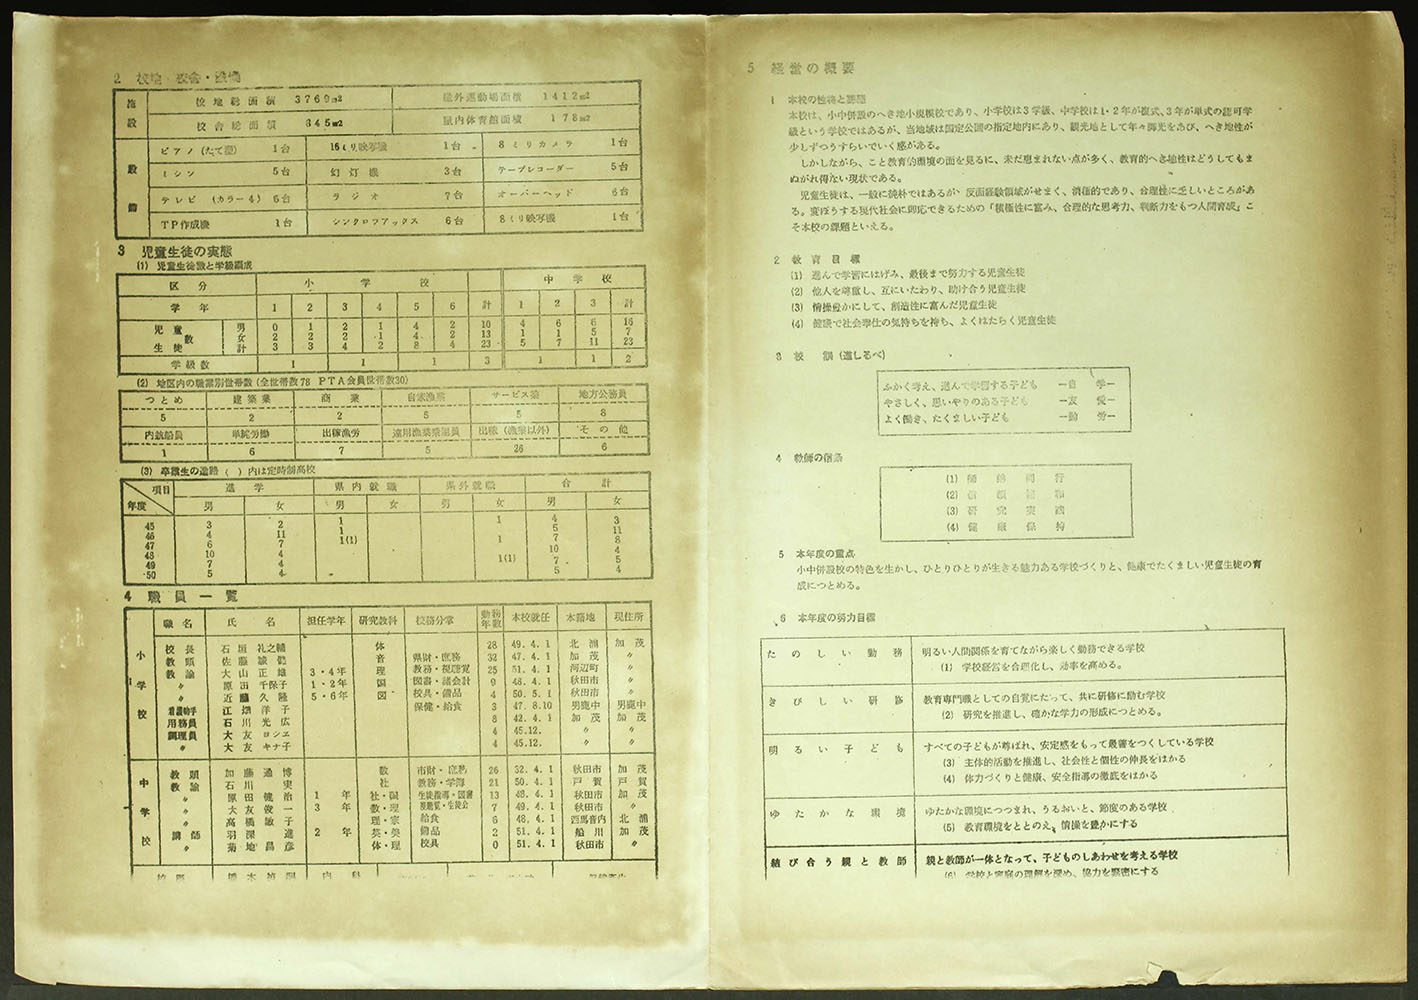 2 校地 校舎・設備
施設 校地総面積 3769m2 屋外運動場面積 1412m2
校舎総面積 645m2 屋内体育館面積 178m2
設備 ピアノ(たて型) 1台 16ミリ映写機 1台 8ミリカメラ 1台
ミシン 5台 幻灯機 3台 テープレコーダー 5台
テレビ (カラー4) 6台 ラジオ 7台 オーバーヘッド 6台
TP作成機 1台 シンクロファックス 6台 8ミリ映写機 1台
3 児童生徒の実態
(1) 児童生徒数と学級編成
区分 小学校 中学校
学年 1 2 3 4 5 6 計 1 2 3 計
児童生徒数 男 0 1 2 1 4 2 10 4 6 6 16
女 2 2 2 1 4 2 13 1 1 5 7
計 3 3 4 2 8 4 23 5 7 11 23
学級数 1 1 1 3 1 1 2
(2) 地区内の職業別世帯数(全世帯数78 PTA会員世帯数30)
つとめ 建築業 商業 自家漁業 サービス業 地方公務員
5 2 2 5 5 8
内航船員 単純労働 出稼漁労 出稼(漁業以外) その他
1 6 7 5 26 6
(3) 卒業生の進路 ( )内は定時制高校
項目 進学 県内就職 県外就職 合計
年度 男 女 男 女 男 女 男 女
45 3 2 1 1 4 3
46 4 11 1 5 11
47 6 7 1(1) 1 7 8
48 10 4 10 4
49 7 4 1(1) 7 5
50 5 4 5 4
4 職員一覧
職名 氏名 担任学年 研究教科 校務分掌 勤務年数 本校就任 本籍地 現住所
小学校
校長 石垣 礼之輔 体 28 49.4.1 北浦 加茂
教頭 佐藤 誠 音 県財・庶務 32 47.4.1 加茂 〃
教諭 大山 正雄 3・4年 理 教務・視聴覚 25 51.4.1 河辺町 〃
〃 原田 千保子 1・2年 国 図書・諸会計 9 48.4.1 秋田市 〃
〃 近藤 久隆 5・6年 図 校具・備品 4 50.5.1 秋田市 〃
養護助手 江畑 洋子 保健・給食 3 47.8.10 男鹿中 男鹿中
用務員 石川 光広 8 42.4.1 加茂 加茂
調理員 大友 ヨシエ 4 45.12. 〃 〃
〃 大友 キナ子 4 45.12. 〃 〃
中学校
教頭 加藤 通博 数 市財・庶務 26 52.4.1 秋田市 加茂
教諭 石川 実 社 教務・学籍 21 50.4.1 戸賀 戸賀
〃 原田 健治 1年 社・国 生徒指導・図書 13 48.4.1 秋田市 加茂
〃 大友 俊一 3年 数・理 視聴覚・生徒会 7 49.4.1 秋田市 〃
〃 高橋 敏子 理・家 給食 6 48.4.1 西馬音内 北浦
講師 羽深 進 2年 英・美 備品 2 51.4.1 船川 加茂
〃 菊地 昌彦 体・理 校具 0 51.4.1 秋田市 〃
5 経営の概要
1 本校の性格と課題
本校は、小中併設のへき地小規模校であり、小学校は3学級、中学校は1・2年が複式、3年が単式の認可学
級という学校ではあるが、当地域は国定公園の指定地内にあり、観光地として年々脚光をあび、へき地性が
少しずつうすらいでいく感がある。
しかしながら、こと教育的環境の面を見るに、未だ恵まれない点が多く、教育的へき地性はどうしてもま
ぬがれ得ない現状である。
児童生徒は、一般に純朴ではあるが 反面経験領域がせまく、消極的であり、合理性に乏しいところがあ
る。変ぼうする現代社会に即応できるための「積極性に富み、合理的な思考力、判断力をもつ人間育成」こ
そ本校の課題といえる。
2 教育目標
(1) 進んで学習にはげみ、最後まで努力する児童生徒
(2) 他人を尊重し、互にいたわり、助け合う児童生徒
(3) 情操豊かにして、創造性に富んだ児童生徒
(4) 健康で社会奉仕の気持ちを持ち、よくはたらく児童生徒
3 校訓(道しるべ)
ふかく考え、進んで学習する子ども ー自学ー
やさしく、思いやりのある子ども ー友愛ー
よく働き、たくましい子ども ー勤労ー
4 教師の信条
(1) 師弟同行
(2) 信頼協和
(3) 研究実践
(4) 健康保持
5 本年度の重点
小中併設校の特色を生かし、ひとりひとりが生きる魅力ある学校づくりと、健康でたくましい児童生徒の育
成につとめる。
6 本年度の努力目標
たのしい勤務 明るい人間関係を育てながら楽しく勤務できる学校
(1) 学校経営を合理化し、効率を高める。
きびしい研修 教育専門職としての自覚にたって、共に研修に励む学校
(2) 研究を推進し、確かな学力の形成につとめる。
明るい子ども すべての子どもが尊ばれ、安定感をもって最善をつくしている学校
(3) 主体的活動を推進し、社会性と個性の伸長をはかる
(4) 体力づくりと健康、安全指導の徹底をはかる
ゆたかな環境 ゆたかな環境につつまれ、うるおいと、節度のある学校
(5) 教育環境をととのえ、情操を豊かにする
結び合う親と教師 親と教師が一体となって、子どものしあわせを考える学校
(6) 学校と家庭の理解を深め、協力を緊密にする